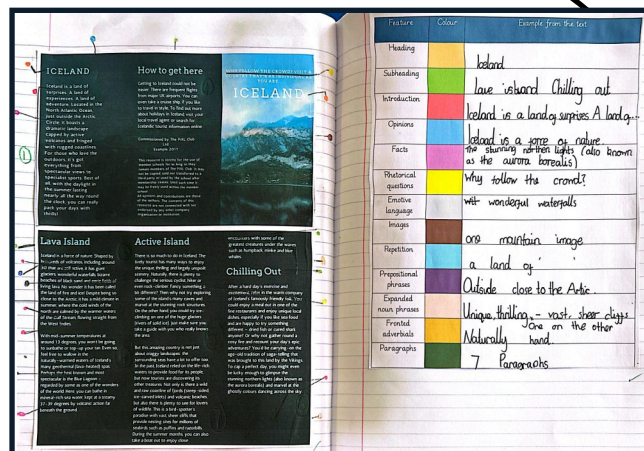 ICELAND
Iceland is a land of
surprises. A land of
experiences. A land of
adventure. Located in the
North Atlantic Ocean,
just outside the Arctic
Circle, it boasts a
dramatic landscape
capped by active
volcanos and fringed
with rugged coastlines.
For those who love the
outdoors, it's got
everything from
spectacular views to
specialist sports. Best of
all, with the daylight in
the summer lasting
nearly all the way round
the clock, you can really
pack your days with
thrills!
1
How to get here
Getting to Iceland could not be
easier. There are frequent flights
from major UK airports. You can
even take a cruise ship, if you like
to travel in style. To find out more
about holidays in Iceland, visit your
local travel agent or search for
Icelandic tourist information online.
WHY FOLLOW THE CROWD? VISIT A
YOU ARE
ICELAND
Lava Island
Iceland is a force of nature. Shaped by
thousands of volcanos, including around
30 that are still active, it has giant
glaciers, wonderful waterfalls, bizarre
beaches of black sand and eerie fields of
living lava. No wonder it has been called
the land of fire and ice! Despite being so
close to the Arctic, it has a mild climate in
summer, where the cold winds of the
north are calmed by the warmer waters
of the Gulf Stream flowing straight from
the West Indies.
With mid-summer temperatures at
around 13 degrees, you won't be going
to sunbathe or top-up your tan. Even so,
feel free to wallow in the
naturally-warmed waters of Iceland's
many geothermal (lava-heated) spas.
Perhaps the best known and most
spectacular is the Blue Lagoon -
regarded by some as one of the wonders
of the world. Here, you can bathe in
mineral-rich sea water, kept at a steamy
37-39 degrees by volcanic action far
beneath the ground.
Active Island
There is so much to do in Iceland. The
body tourist has many ways to enjoy
the unique, thrilling and largely unspoilt
scenery. Naturally, there is plenty to
challenge the serious cyclist, hiker or
even rock-climber. Fancy something a
bit different? Then why not try exploring
some of the island's many caves and
marvel at the stunning rock structures.
On the other hand, you could try ice-
climbing on one of the huge glaciers
(rivers of solid ice). Just make sure you
take a guide with you who really knows
the area.
But this amazing country is not just
about craggy landscapes: the
surrounding seas have a lot to offer too.
In the past, Iceland relied on the life-rich
waters to provide food for its people,
but now tourists are discovering its
other treasures. Not only is there a wild
and raw coastline of fjords (steep-sided,
ice-carved inlets) and volcanic beaches,
but also there is plenty to see for lovers
of wildlife. This is a bird-spotter's
paradise with vast, sheer cliffs that
provide nesting sites for millions of
seabirds such as puffins and razorbills.
During the summer months, you can also
take a boat out to enjoy close
encounters with some of the
greatest creatures under the waves
such as humpback, minke and blue
whales.
Chilling Out
After a hard day's exercise and
excitement, relax in the warm company
of Iceland's famously friendly folk. You
could enjoy a meal out in one of the
fine restaurants and enjoy unique local
dishes, especially if you like sea food
and are happy to try something
different - dried fish or cured shark
anyone? Or why not gather round a
cosy fire and recount your day's epic
adventures? You'd be carrying-on the
age-old tradition of saga-telling that
was brought to this land by the Vikings.
To cap a perfect day, you might even
be lucky enough to glimpse the
stunning northern lights (also known as
the aurora borealis) and marvel at the
ghostly colours dancing across the sky.
Feature Colour Example from the text
Heading Iceland
Subheading lava island Chilling out
Introduction Iceland is a land of surprises A land of...
Opinions Iceland is a force of nature
Facts The stunning northen lights (also known
as the aurora borealis)
Rhetorical questions Why follow the crowd?
Emotive language wonderful waterfalls
Images one mountain image
Repetition a land of
Prepositional phrases Outside close to the Artic
Expanded noun phrases Unique, thrilling - vast, sheer cliffs
Fronted adverbials Naturally one on the other hand.
Paragraphs 7 Paragraphs